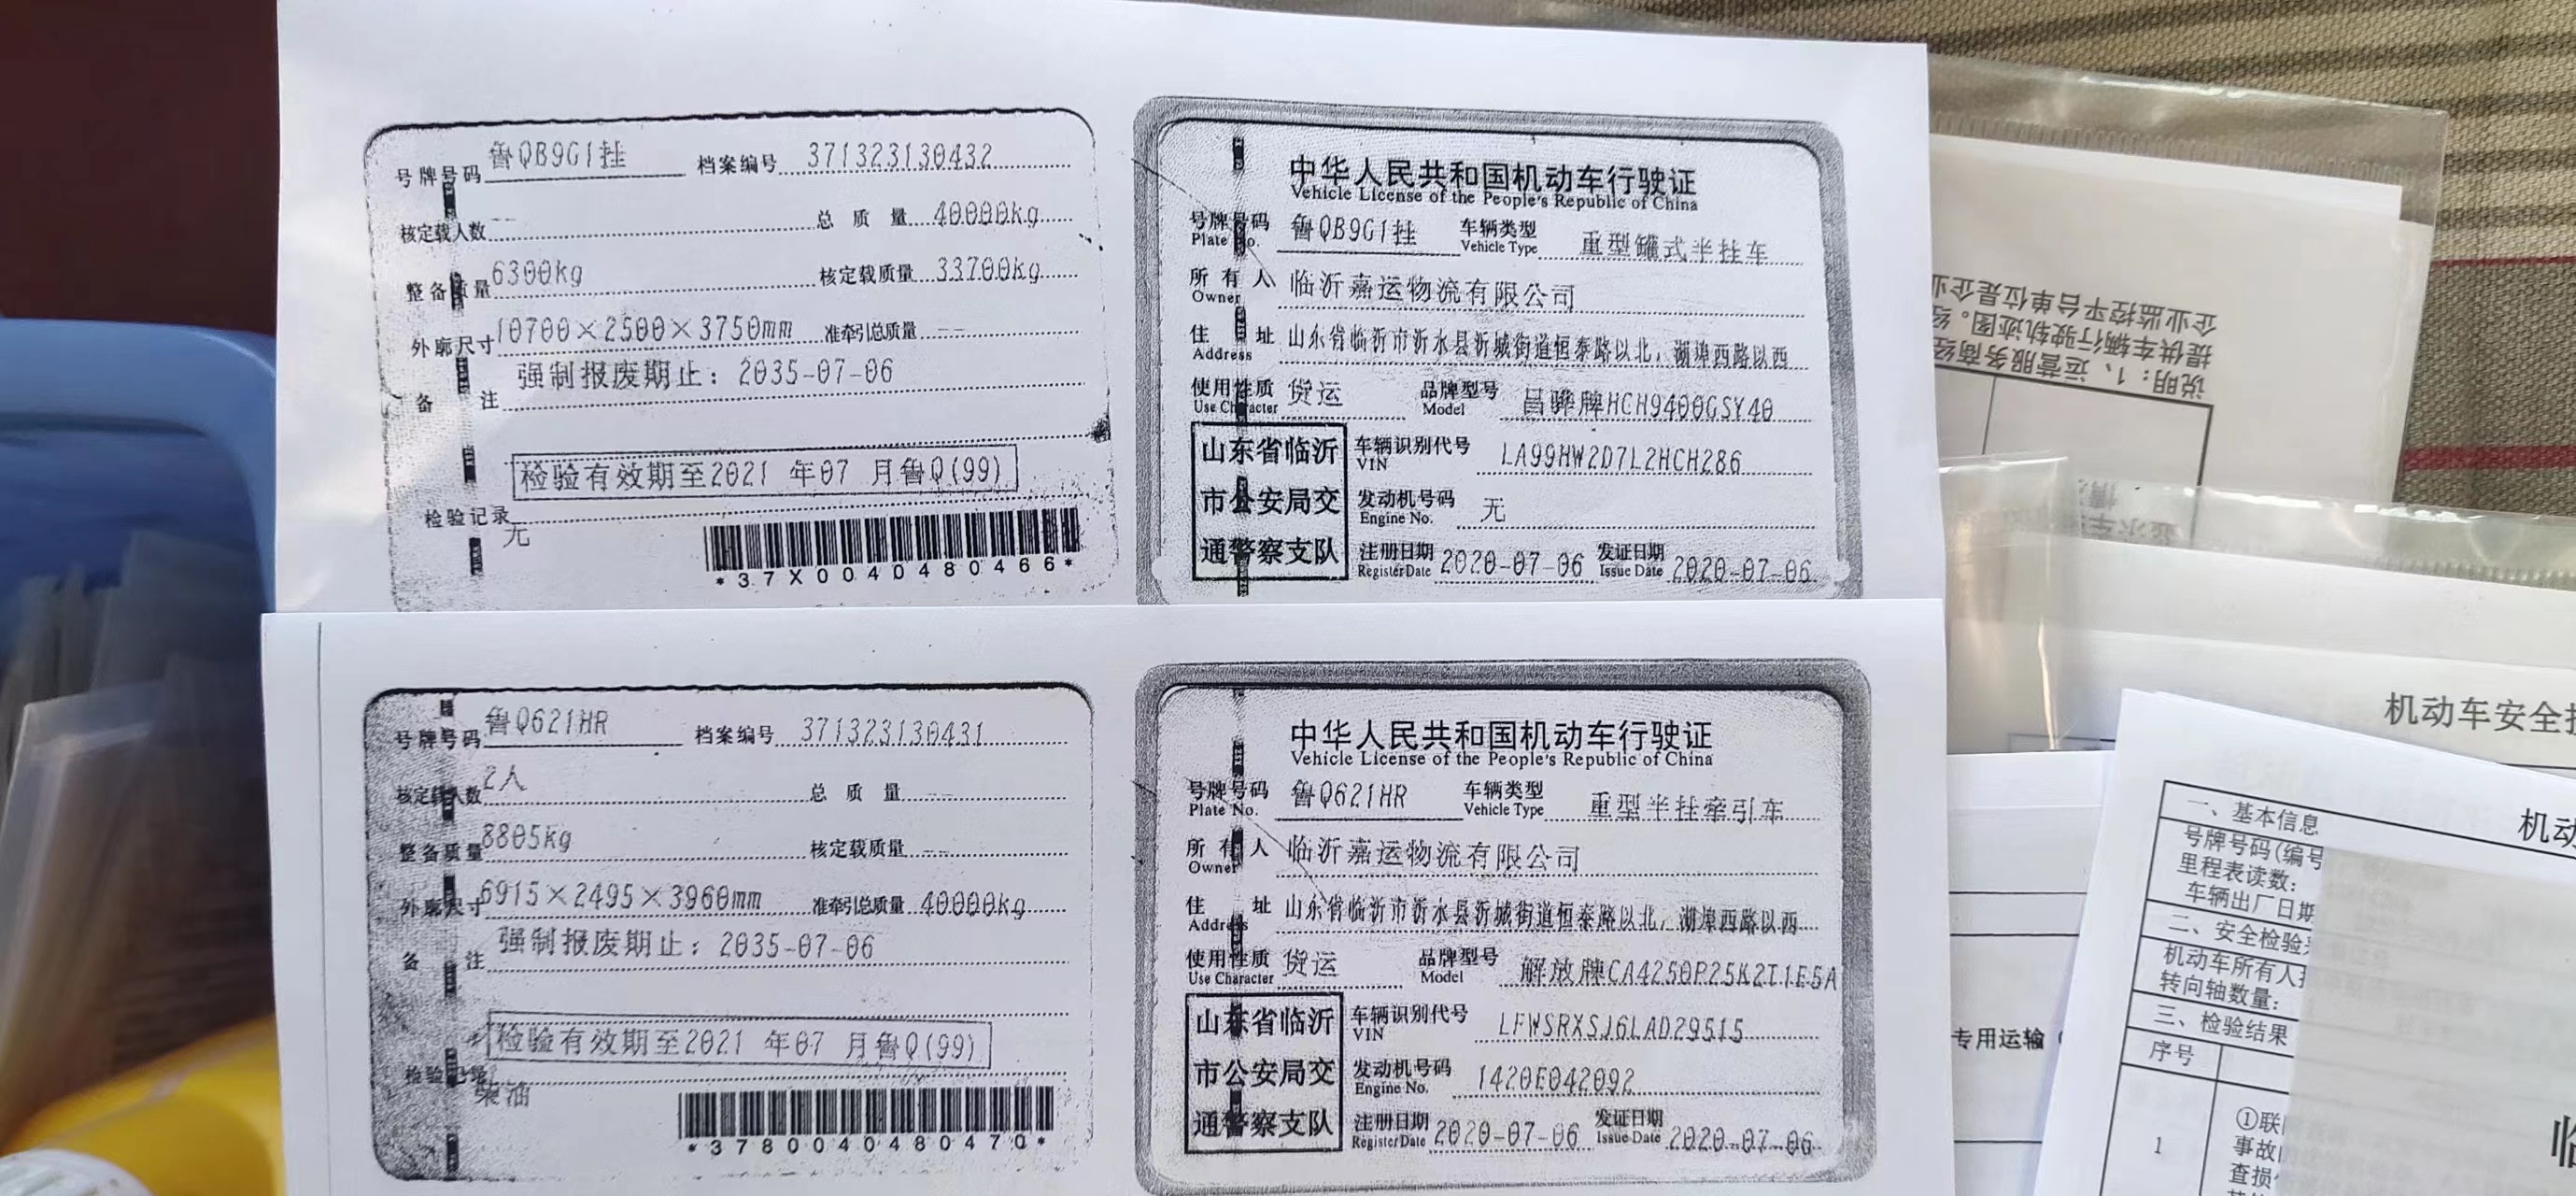 号牌号码 鲁QB9G1挂 档案编号 371323130432
核定载人数 -- 总质量 40000kg
整备质量 6300kg 核定载质量 33700kg
外廓尺寸 10700×2500×3750mm 准牵引总质量 --
备注 强制报废期止：2035-07-06
检验有效期至2021 年07 月鲁Q(99)
检验记录
无
*37X0040480466*
中华人民共和国机动车行驶证
Vehicle License of the People's Republic of China
号牌号码 鲁QB9G1挂 车辆类型 重型罐式半挂车
Plate No. Vehicle Type
所有人 临沂嘉运物流有限公司
Owner
住址 山东省临沂市沂水县沂城街道恒泰路以北，湖埠西路以西
Address
使用性质 货运 品牌型号 昌骅牌HCH9400GSY40
Use Character Model
山东省临沂
市公安局交
通警察支队
车辆识别代号 LA99HW2D7L2HCH286
VIN
发动机号码 无
Engine No.
注册日期 2020-07-06 发证日期 2020-07-06
Register Date Issue Date
号牌号码 鲁Q621HR 档案编号 371323130431
核定载人数 2人 总质量 --
整备质量 8805kg 核定载质量 --
外廓尺寸 6915×2495×3960mm 准牵引总质量 40000kg
备注 强制报废期止：2035-07-06
检验有效期至2021 年07 月鲁Q(99)
检验记录
柴油
*3780040480470*
中华人民共和国机动车行驶证
Vehicle License of the People's Republic of China
号牌号码 鲁Q621HR 车辆类型 重型半挂牵引车
Plate No. Vehicle Type
所有人 临沂嘉运物流有限公司
Owner
住址 山东省临沂市沂水县沂城街道恒泰路以北，湖埠西路以西
Address
使用性质 货运 品牌型号 解放牌CA4250P25K2T1E5A
Use Character Model
山东省临沂
市公安局交
通警察支队
车辆识别代号 LFWSRXSJ6LAD29515
VIN
发动机号码 1420E042092
Engine No.
注册日期 2020-07-06 发证日期 2020-07-06
Register Date Issue Date
说明：1、运营服务商经
提供车辆行驶轨迹图。经
企业监控平台单位是企业
机动车安全技
机动
一、基本信息
号牌号码(编号
里程表读数：
车辆出厂日期
二、安全检验
机动车所有人
转向轴数量：
三、检验结果
序号
1
①联
事故
查损
专用运输
临